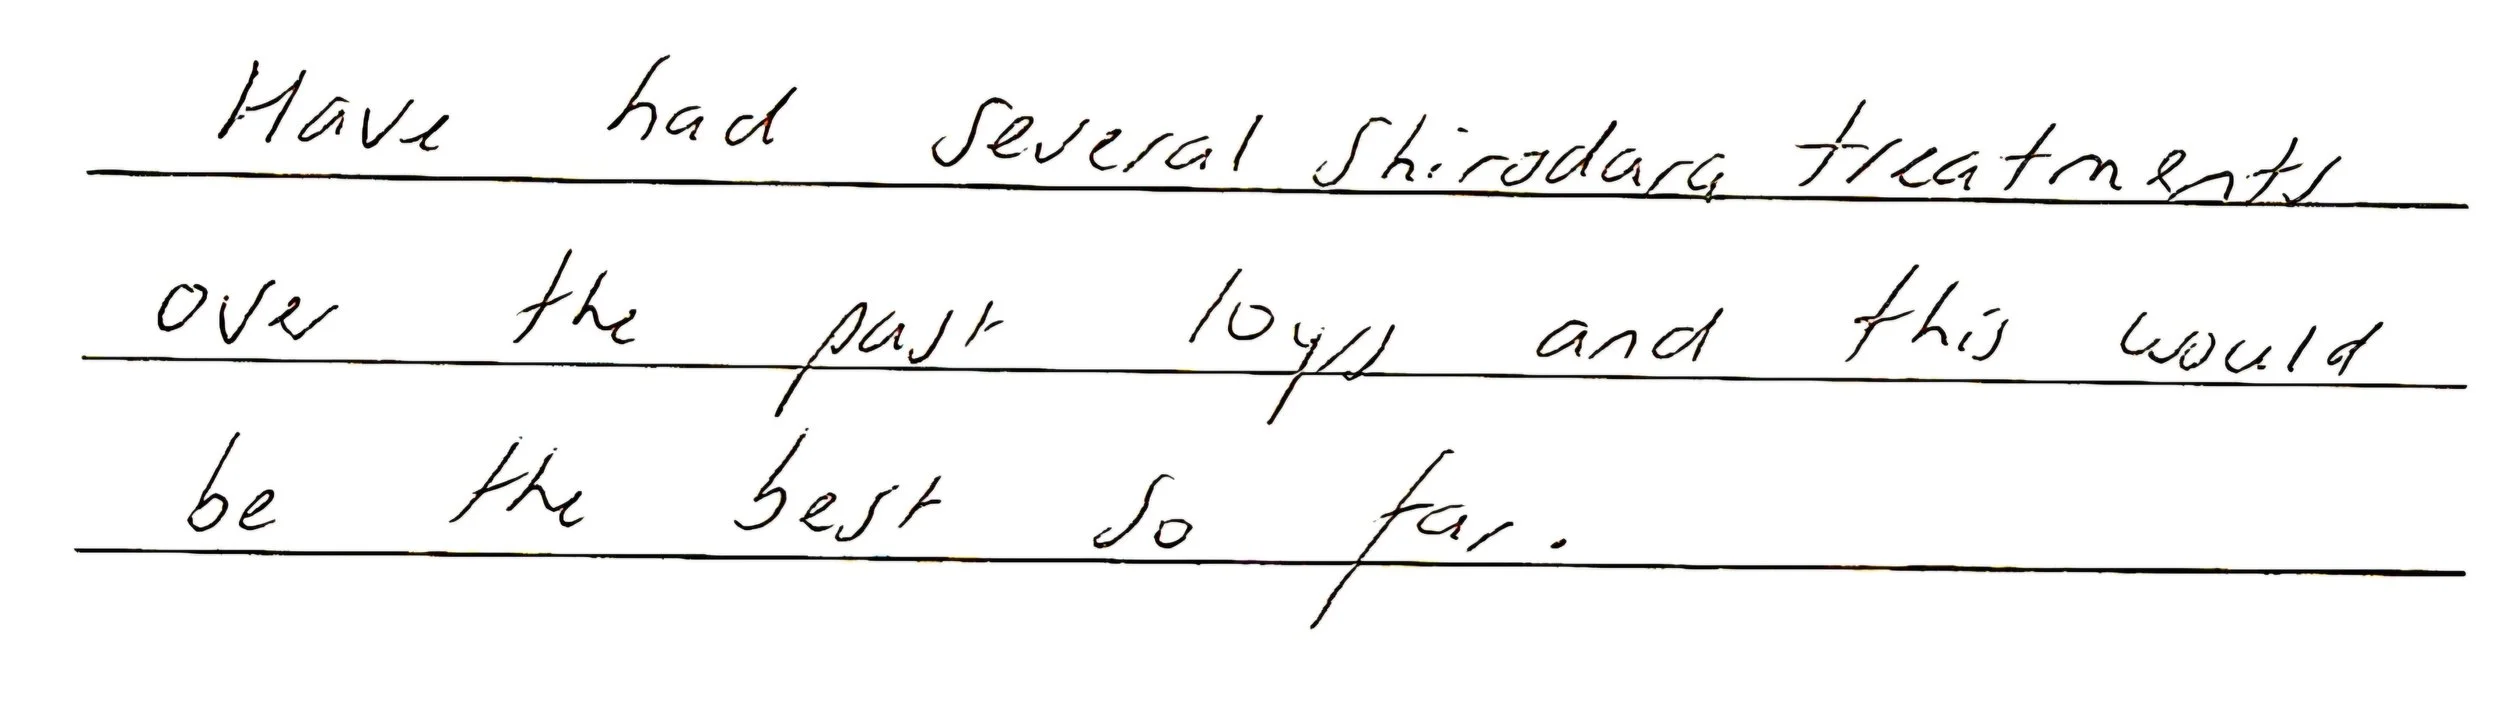 Have had several Shirodara treatments
over the past 10 yrs and this would
be the best so far.